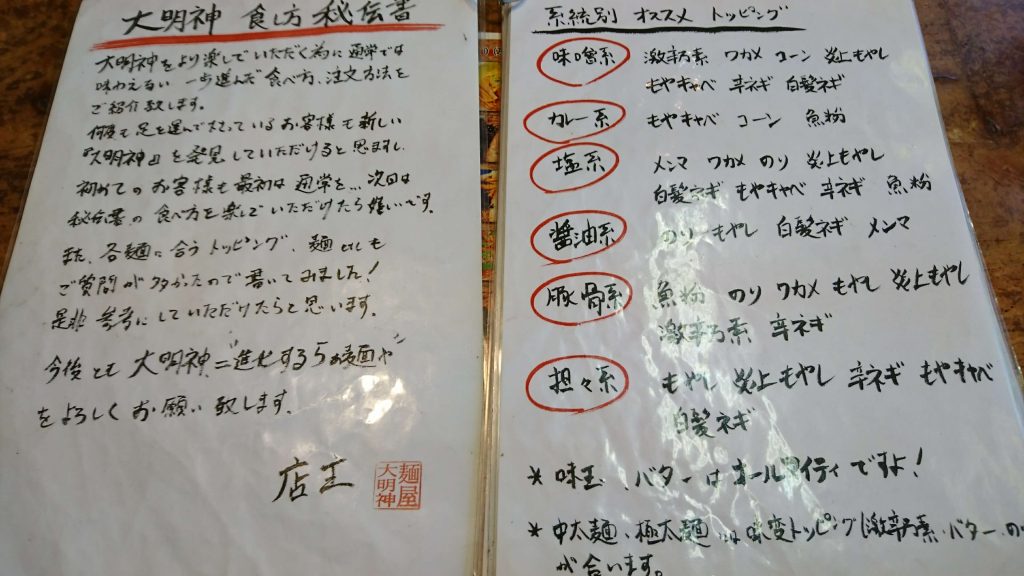 大明神 食し方 秘伝書
大明神をより楽しでいただく為に通常では
味わえない 一歩進んだ食べ方、注文方法を
ご紹介致します。
何度も足を運んで下さっているお客様も新しい
『大明神』を発見していただけると思ますし
初めてのお客様も最初は通常を…次回は
秘伝書の食べ方を楽しでいただけたら嬉いです。
また、各麺に合うトッピング、麺としも
ご質問が多かたので書いてみました！
是非参考にしていただけたらと思います。
今後とも大明神、"進化するらぁ麺や"
をよろしくお願い致します。
店主
麺屋
大明神
系統別 オススメ トッピング
味噌系 激辛の素 ワカメ コーン 炎上もやし
もやキャベ 辛ネギ 白髪ネギ
カレー系 もやキャベ コーン 魚粉
塩系 メンマ ワカメ のり 炎上もやし
白髪ネギ もやキャベ 辛ネギ 魚粉
醤油系 のり もやし 白髪ネギ メンマ
豚骨系 魚粉 のり ワカメ もやし 炎上もやし
激辛の素 辛ネギ
担々系 もやし 炎上もやし 辛ネギ もやキャベ
白髪ネギ
* 味玉、バターはオールマイティですよ！
* 中太麺、極太麺は味変トッピング(激辛の素・バター・の
が合います。